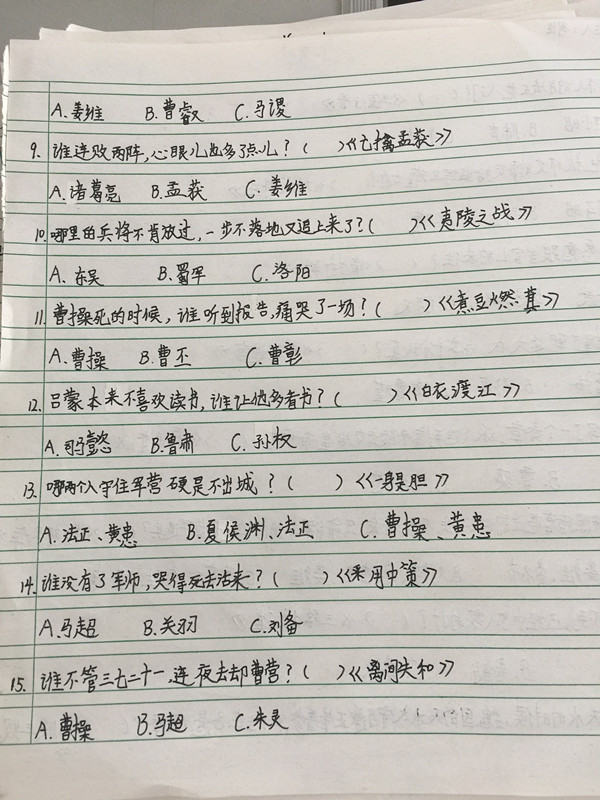 A.姜维 B.曹睿 C.马谡
9.谁连败两阵,心眼儿也多了点儿?( )《七擒孟获》
A.诸葛亮 B.孟获 C.姜维
10.哪里的兵将不肯放过,一步不落地又追上来了?( )《夷陵之战》
A.东吴 B.蜀军 C.洛阳
11.曹操死的时候,谁听到报告,痛哭了一场?( )《煮豆燃萁》
A.曹操 B.曹丕 C.曹彰
12.吕蒙本来不喜欢读书,谁让他多看书?( )《白衣渡江》
A.司马懿 B.鲁肃 C.孙权
13.哪两个人守住军营硬是不出城?( )《一身是胆》
A.法正、黄忠 B.夏侯渊、法正 C.曹操、黄忠
14.谁没有了军师,哭得死去活来?( )《采用中策》
A.马超 B.关羽 C.刘备
15.谁不管三七二十一,连夜去却曹营?( )《离间失和》
A.曹操 B.马超 C.朱灵